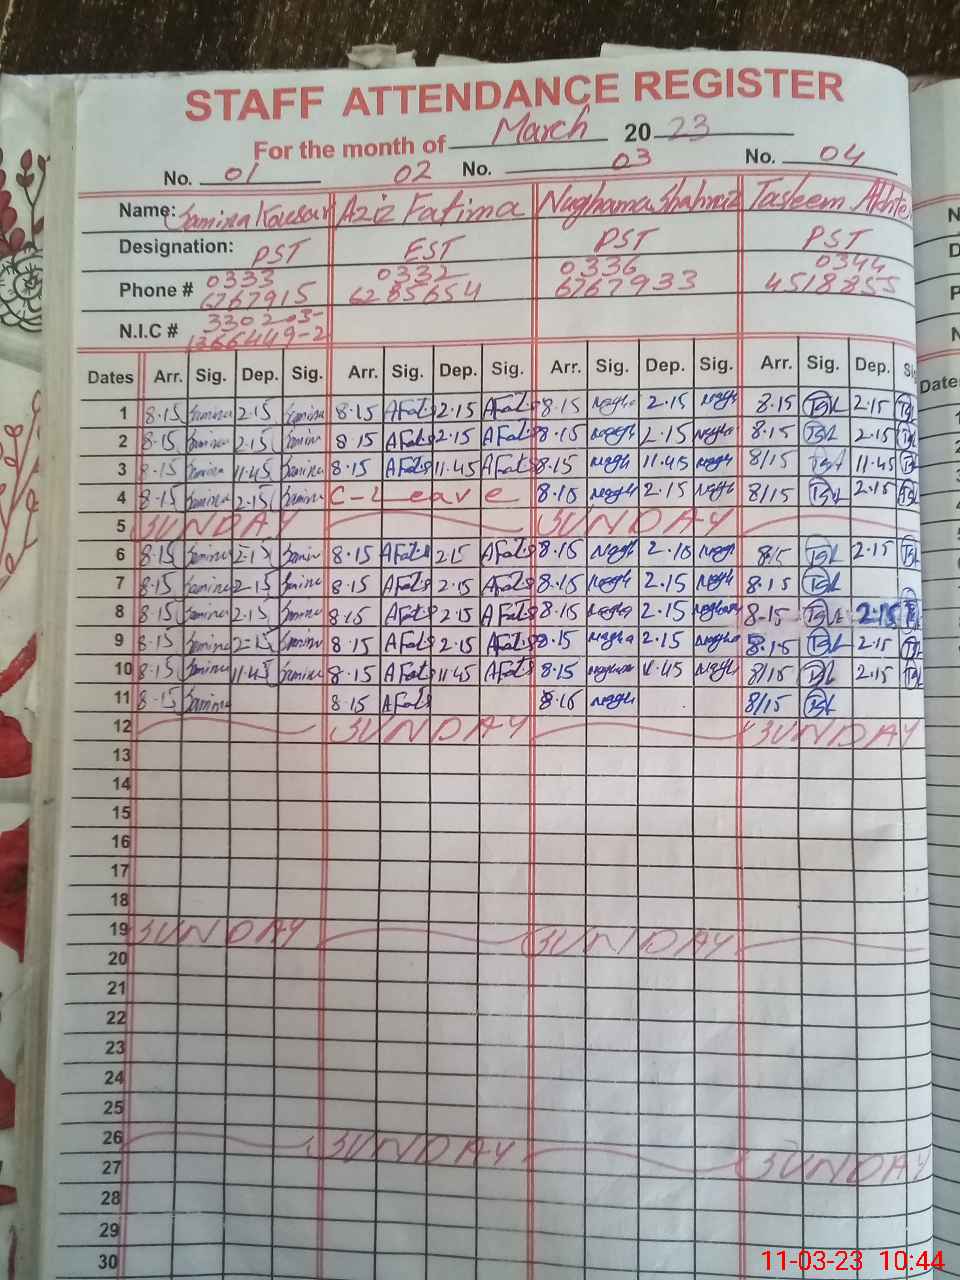 STAFF ATTENDANCE REGISTER
For the month of March 2023
No. 01 02 No. 03 No. 04
Name: Samina Kousar Aziz Fatima Naghama Shahnaz Tasleem Akhter
Designation: PST EST PST PST
0333 0332 0336 0344
Phone # 6767915 6285654 6767933 4518855
N.I.C # 3302
Dates Arr. Sig. Dep. Sig. Arr. Sig. Dep. Sig. Arr. Sig. Dep. Sig. Arr. Sig. Dep.
1 8.15 Samina 2.15 Samina 8.15 AFat 2.15 AFat 8.15 2.15 8.15 2.15
2 8.15 Samina 2.15 Samina 8.15 AFat 2.15 AFat 8.15 2.15 8.15 2.15
3 8.15 Samina 11.45 Samina 8.15 AFat 11.45 AFat 8.15 11.45 8/15 11.45
4 8.15 Samina 2.15 Samina C-Leave 8.15 2.15 8/15 2.15
5 SUNDAY SUNDAY
6 8.15 Samina 2.15 Samina 8.15 AFat 2.15 AFat 8.15 2.15 8/15 2.15
7 8.15 Samina 2.15 Samina 8.15 AFat 2.15 AFat 8.15 2.15 8.15
8 8.15 Samina 2.15 Samina 8.15 AFat 2.15 AFat 8.15 2.15 8-15 2.15
9 8.15 Samina 2.15 Samina 8.15 AFat 2.15 AFat 8.15 2.15 8.15 2.15
10 8.15 Samina 11.45 Samina 8.15 AFat 11.45 AFat 8.15 11.45 8/15 2.15
11 8.15 Samina 8.15 AFat 8.15 8/15
12 SUNDAY SUNDAY
13
14
15
16
17
18
19 SUNDAY SUNDAY
20
21
22
23
24
25
26 SUNDAY SUNDAY
27
28
29
30
11-03-23 10:44